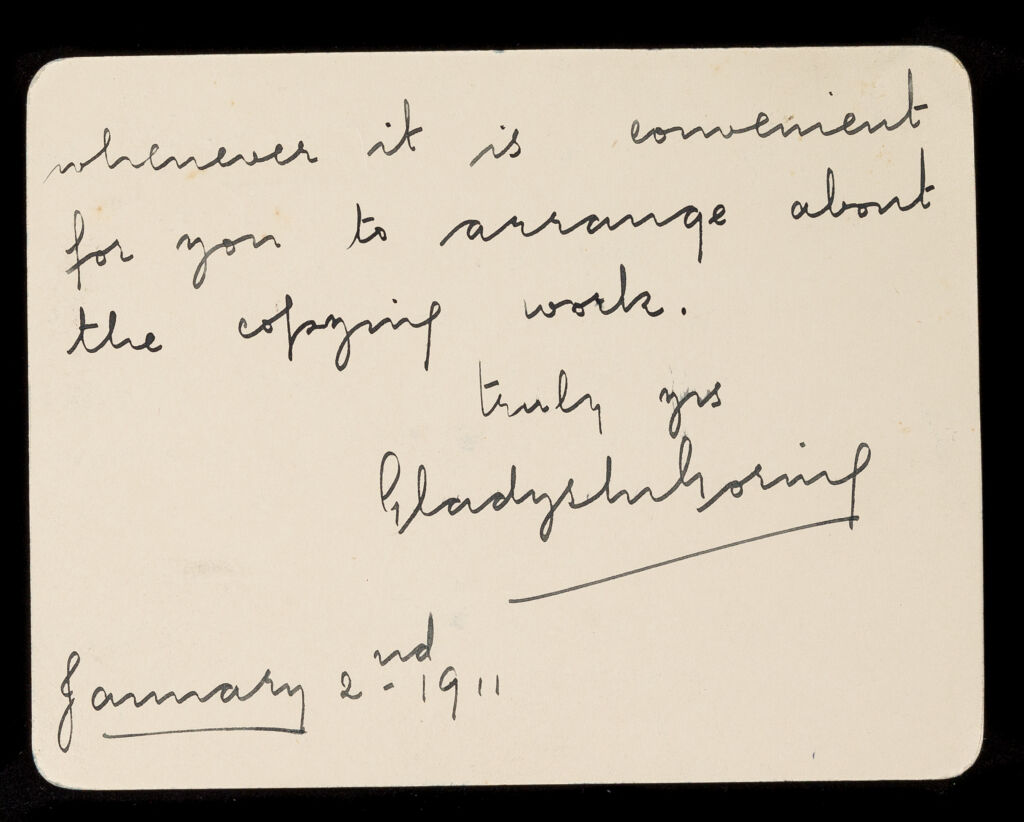 whenever it is convenient
for you to arrange about
the copying work.
truly yrs
Gladys
January 2nd. 1911